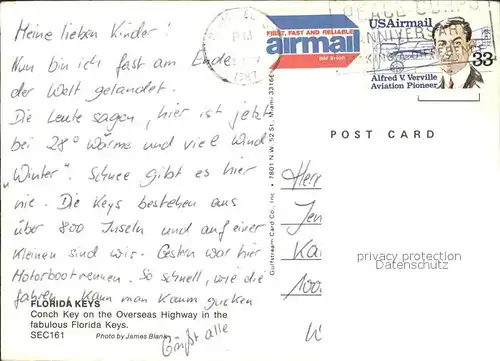 Meine lieben Kinder!
Nun bin ich fast am Ende
der Welt gelandet.
Die Leute sagen, hier ist jetzt
bei 28° Wärme und viel Wind
„Winter". Schnee gibt es hier
nie. Die Keys bestehen aus
über 800 Inseln und auf einer
kleinen sind wir. Gestern war hier
Motorbootrennen. So schnell, wie die
fahren, kann man kaum gucken
Grüßt alle
FLORIDA KEYS
Conch Key on the Overseas Highway in the
fabulous Florida Keys.
SEC161 Photo by James Blank
Gulfstream Card Co., Inc. • 7801 N.W. 52 St. Miami 33166
PM
1987
FIRST, FAST AND RELIABLE
airmail
PAR AVION
PEACE CORPS
ANNIVERSARY
USAirmail
33
Alfred V. Verville
Aviation Pioneer
POST CARD
Herr
Jen
Ka
100
W
privacy protection
Datenschutz